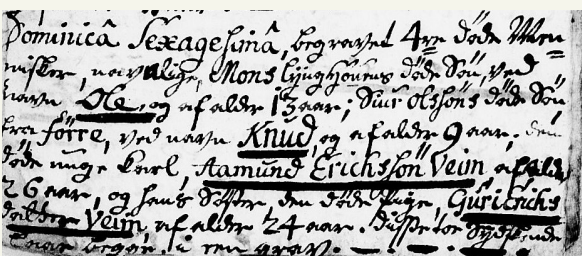 Dominicâ Sexagesimâ, begravet 4re døde Men=
nisker, navnlige, Mons døde Søn, ved
navn Ole, og af alder 13 aar; Siur Olssøns døde Søn
fra førre, ved navn Knud, og af alder 9 aar; den
døde unge Karl, Aamund Erichssøn Veim af alder
26 aar, og hans Søster, den døde Pige, Guri Erichs
datter Veim, af alder 24 aar. disse toe Sydskende
begge i een grav.